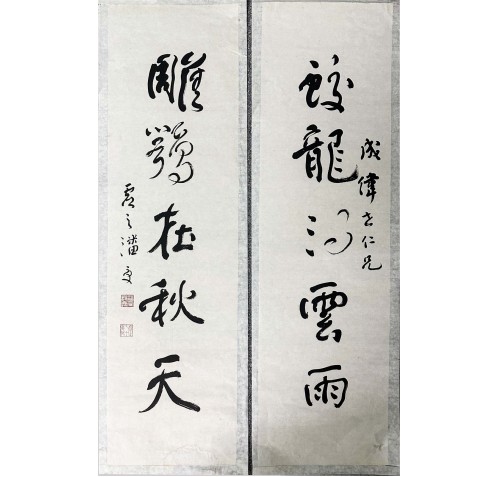 蛟龍得雲雨
成緯仁兄
雕鶚在秋天
虛之潘受